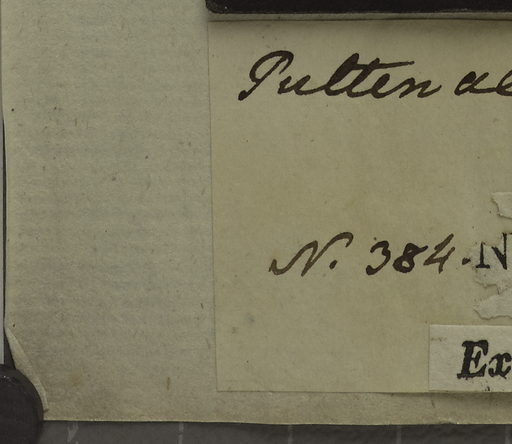 Pultenae
N. 384. N
Ex